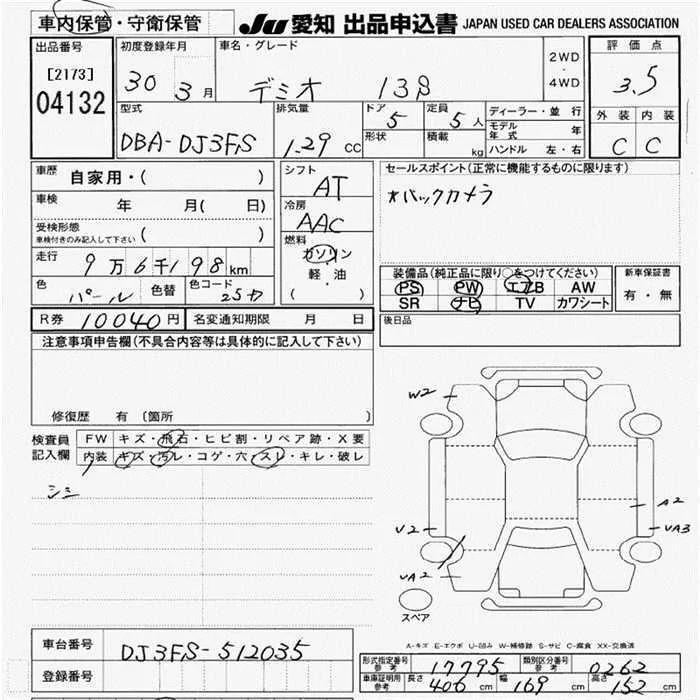 車内保管・守衛保管 JU 愛知 出品申込書 JAPAN USED CAR DEALERS ASSOCIATION
出品番号 初度登録年月 車名・グレード 2WD・4WD 評価点
[2173] 30 3月 デミオ 13S 3.5
04132
型式 排気量 ドア 定員 ディーラー・並行 外装 内装
DBA-DJ3FS 1.29 CC 5 5人 モデル年式 年 C C
形状 積載 kg ハンドル 左・右
車歴 自家用・( ) シフト AT セールスポイント(正常に機能するものに限ります)
車検 年 月( 日) 冷房 AAC *バックカメラ
受検形態 ( )
車検付きのみ記入して下さい
燃料 ガソリン
走行 9万6千198km 軽・油
( )
装備品(純正品に限り○をつけてください) 新車保証書
色 パール 色替 色コード 25D
PS PW エアB AW 有・無
SR ナビ TV カワシート
R券 10040円 名変通知期限 月 日 後日品
注意事項申告欄(不具合内容等は具体的に記入して下さい)
修復歴 有 〔箇所 〕
検査員記入欄 FW キズ・飛石・ヒビ割・リペア跡・X要
内装 キズ・汚レ・コゲ・穴・スレ・キレ・破レ
シミ
W2
A2
U2
UA3
UA2
スペア
A-キズ E-エクボ U-凹み W-補修跡 S-サビ C-腐食 XX-交換済
車台番号 DJ3FS-512035
登録番号
形式指定番号 参考 17795 類別区分番号 参考 0262
車庫証明用 参考 長さ 406cm 幅 169cm 高さ 152cm